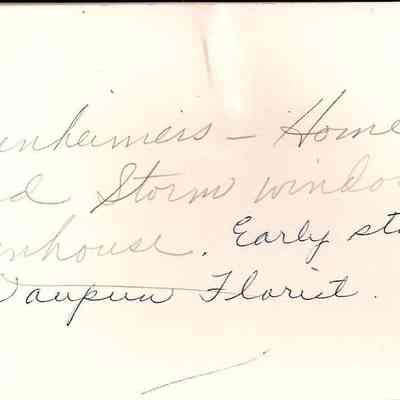 nheimers – Home
d Storm windo
nhouse. Early st
Waupun Florist.